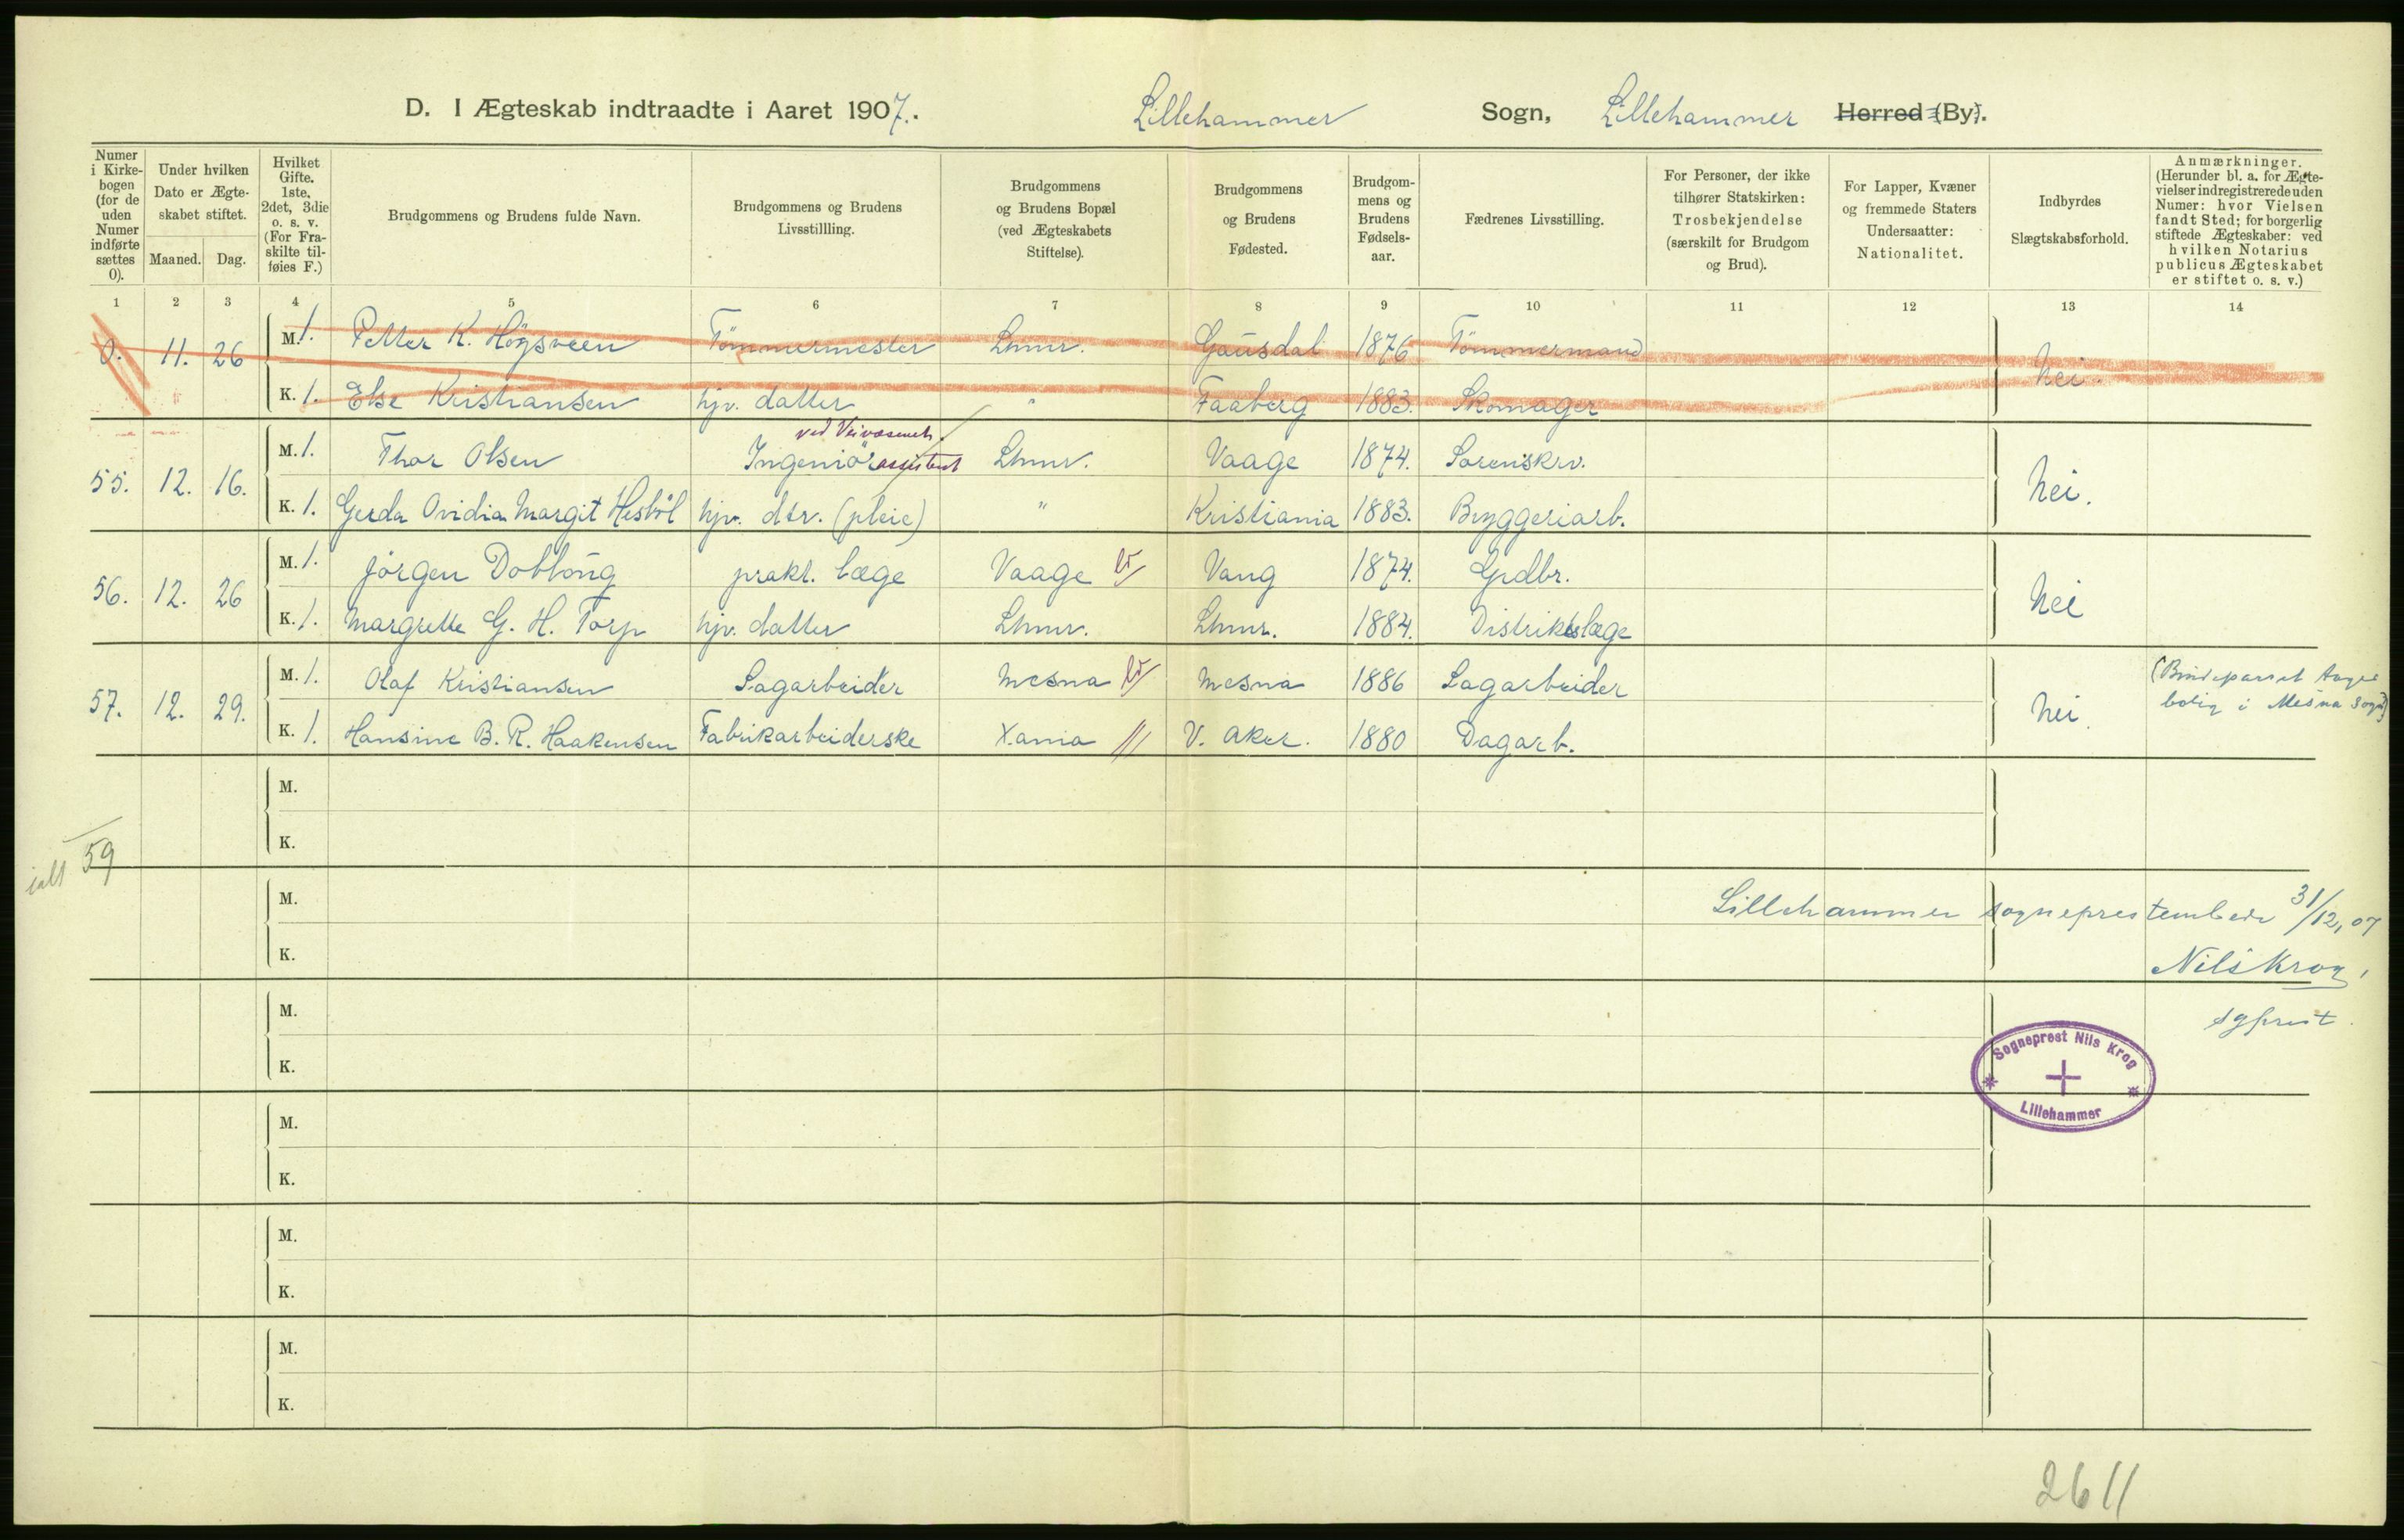 D. I Ægteskab indtraadte i Aaret 1907. Lillehammer Sogn, Lillehammer Herred (By).
Numer i Kirkebogen (for de uden Numer indførte sættes 0).
Under hvilken Dato er Ægteskabet stiftet.
Maaned. Dag.
Hvilket Gifte. 1ste, 2det, 3die o. s. v. (For Fraskilte tilføies F.)
Brudgommens og Brudens fulde Navn.
Brudgommens og Brudens Livsstillling.
Brudgommens og Brudens Bopæl (ved Ægteskabets Stiftelse).
Brudgommens og Brudens Fødested.
Brudgommens og Brudens Fødselsaar.
Fædrenes Livsstilling.
For Personer, der ikke tilhører Statskirken: Trosbekjendelse (særskilt for Brudgom og Brud).
For Lapper, Kvæner og fremmede Staters Undersaatter: Nationalitet.
Indbyrdes Slægtskabsforhold.
Anmærkninger. (Herunder bl. a. for Ægtevielser indregistrerede uden Numer: hvor Vielsen fandt Sted; for borgerlig stiftede Ægteskaber: ved hvilken Notarius publicus Ægteskabet er stiftet o. s. v.)
1 2 3 4 5 6 7 8 9 10 11 12 13 14
0. 11. 26 M. 1. Petter K. Högsveen Tömmermester Lhmr. Gausdal 1876 Tömmermand nei.
K. 1. Else Kristiansen hjv. datter " Faaberg 1883. Skomager
ved Veivæsenet.
55. 12. 16. M. 1. Thor Olsen Ingeniörassistent Lhmr. Vaage 1874. Sorenskrv. nei.
K. 1. Gerda Ovidia Margit Hesböl hjv. dtr. (pleie) " Kristiania 1883. Bryggeriarb.
56. 12. 26 M. 1. Jörgen Dobloug prakt. læge Vaage Vang 1874. Grdbr. nei
K. 1. Margrette G. H. Torp hjv. datter Lhmr. Lhmr. 1884. Distriktslæge
57. 12. 29. M. 1. Olaf Kristiansen Sagarbeider Mesna Mesna 1886 Sagarbeider nei. (Brudeparret
bolig i Mesna Sogn)
K. 1. Hansine B. R. Haakensen Fabrikarbeiderske Xania V. Aker. 1880 Dagarb.
M.
K.
ialt 59
M.
Lillehammer sogneprestembede 31/12, 07
K.
Nils Krog,
M.
sgprest.
K.
Sogneprest Nils Krog
Lillehammer
M.
K.
M.
K.
M.
K.
2611